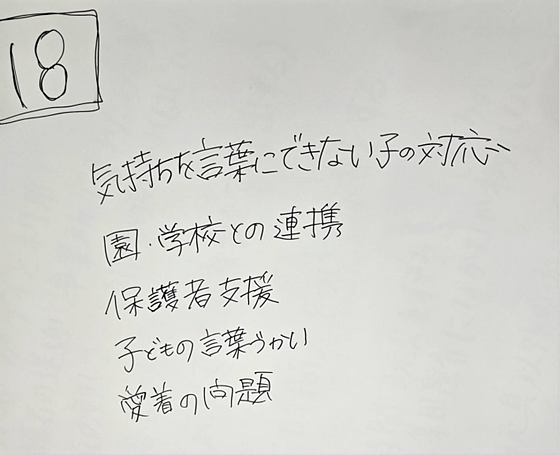 18
気持ちを言葉にできない子の対応
園・学校との連携
保護者支援
子どもの言葉づかい
愛着の問題